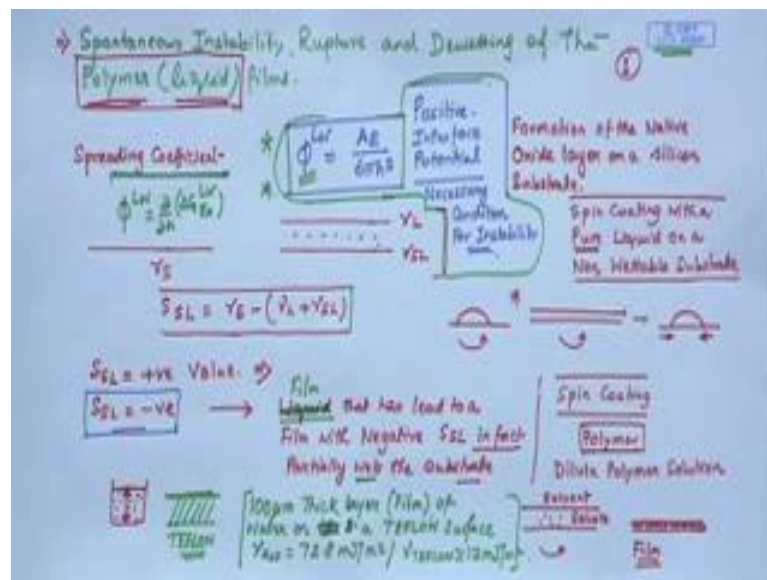 ⇒ Spontaneous Instability, Rupture and Dewetting of Thin
Polymer (liquid) Films.
①
Spreading Coefficient-
ϕ^LW = ∂/∂h (ΔG^LW)
γS
S_SL = γS - (γL + γSL)
* ϕ^LW = AE / 6πh³
*
Positive
Interface
Potential
Necessary
Condition
For Instability
γL
γSL
Formation of the Native
Oxide layer on a Silicon
Substrate.
Spin Coating with a
Pure Liquid on a
Non Wettable Substrate
S_SL = +ve Value. ⇒
S_SL = -ve →
Film
Liquid that has lead to a
Film with Negative SSL in fact
Partially wets the Substrate
Spin Coating
Polymer
Dilute Polymer Solution
TEFLON
100μm Thick layer (Film) of
Water on a TEFLON Surface
= 72.8 mJ/m² / γTEFLON
Solvent
Solute
Film